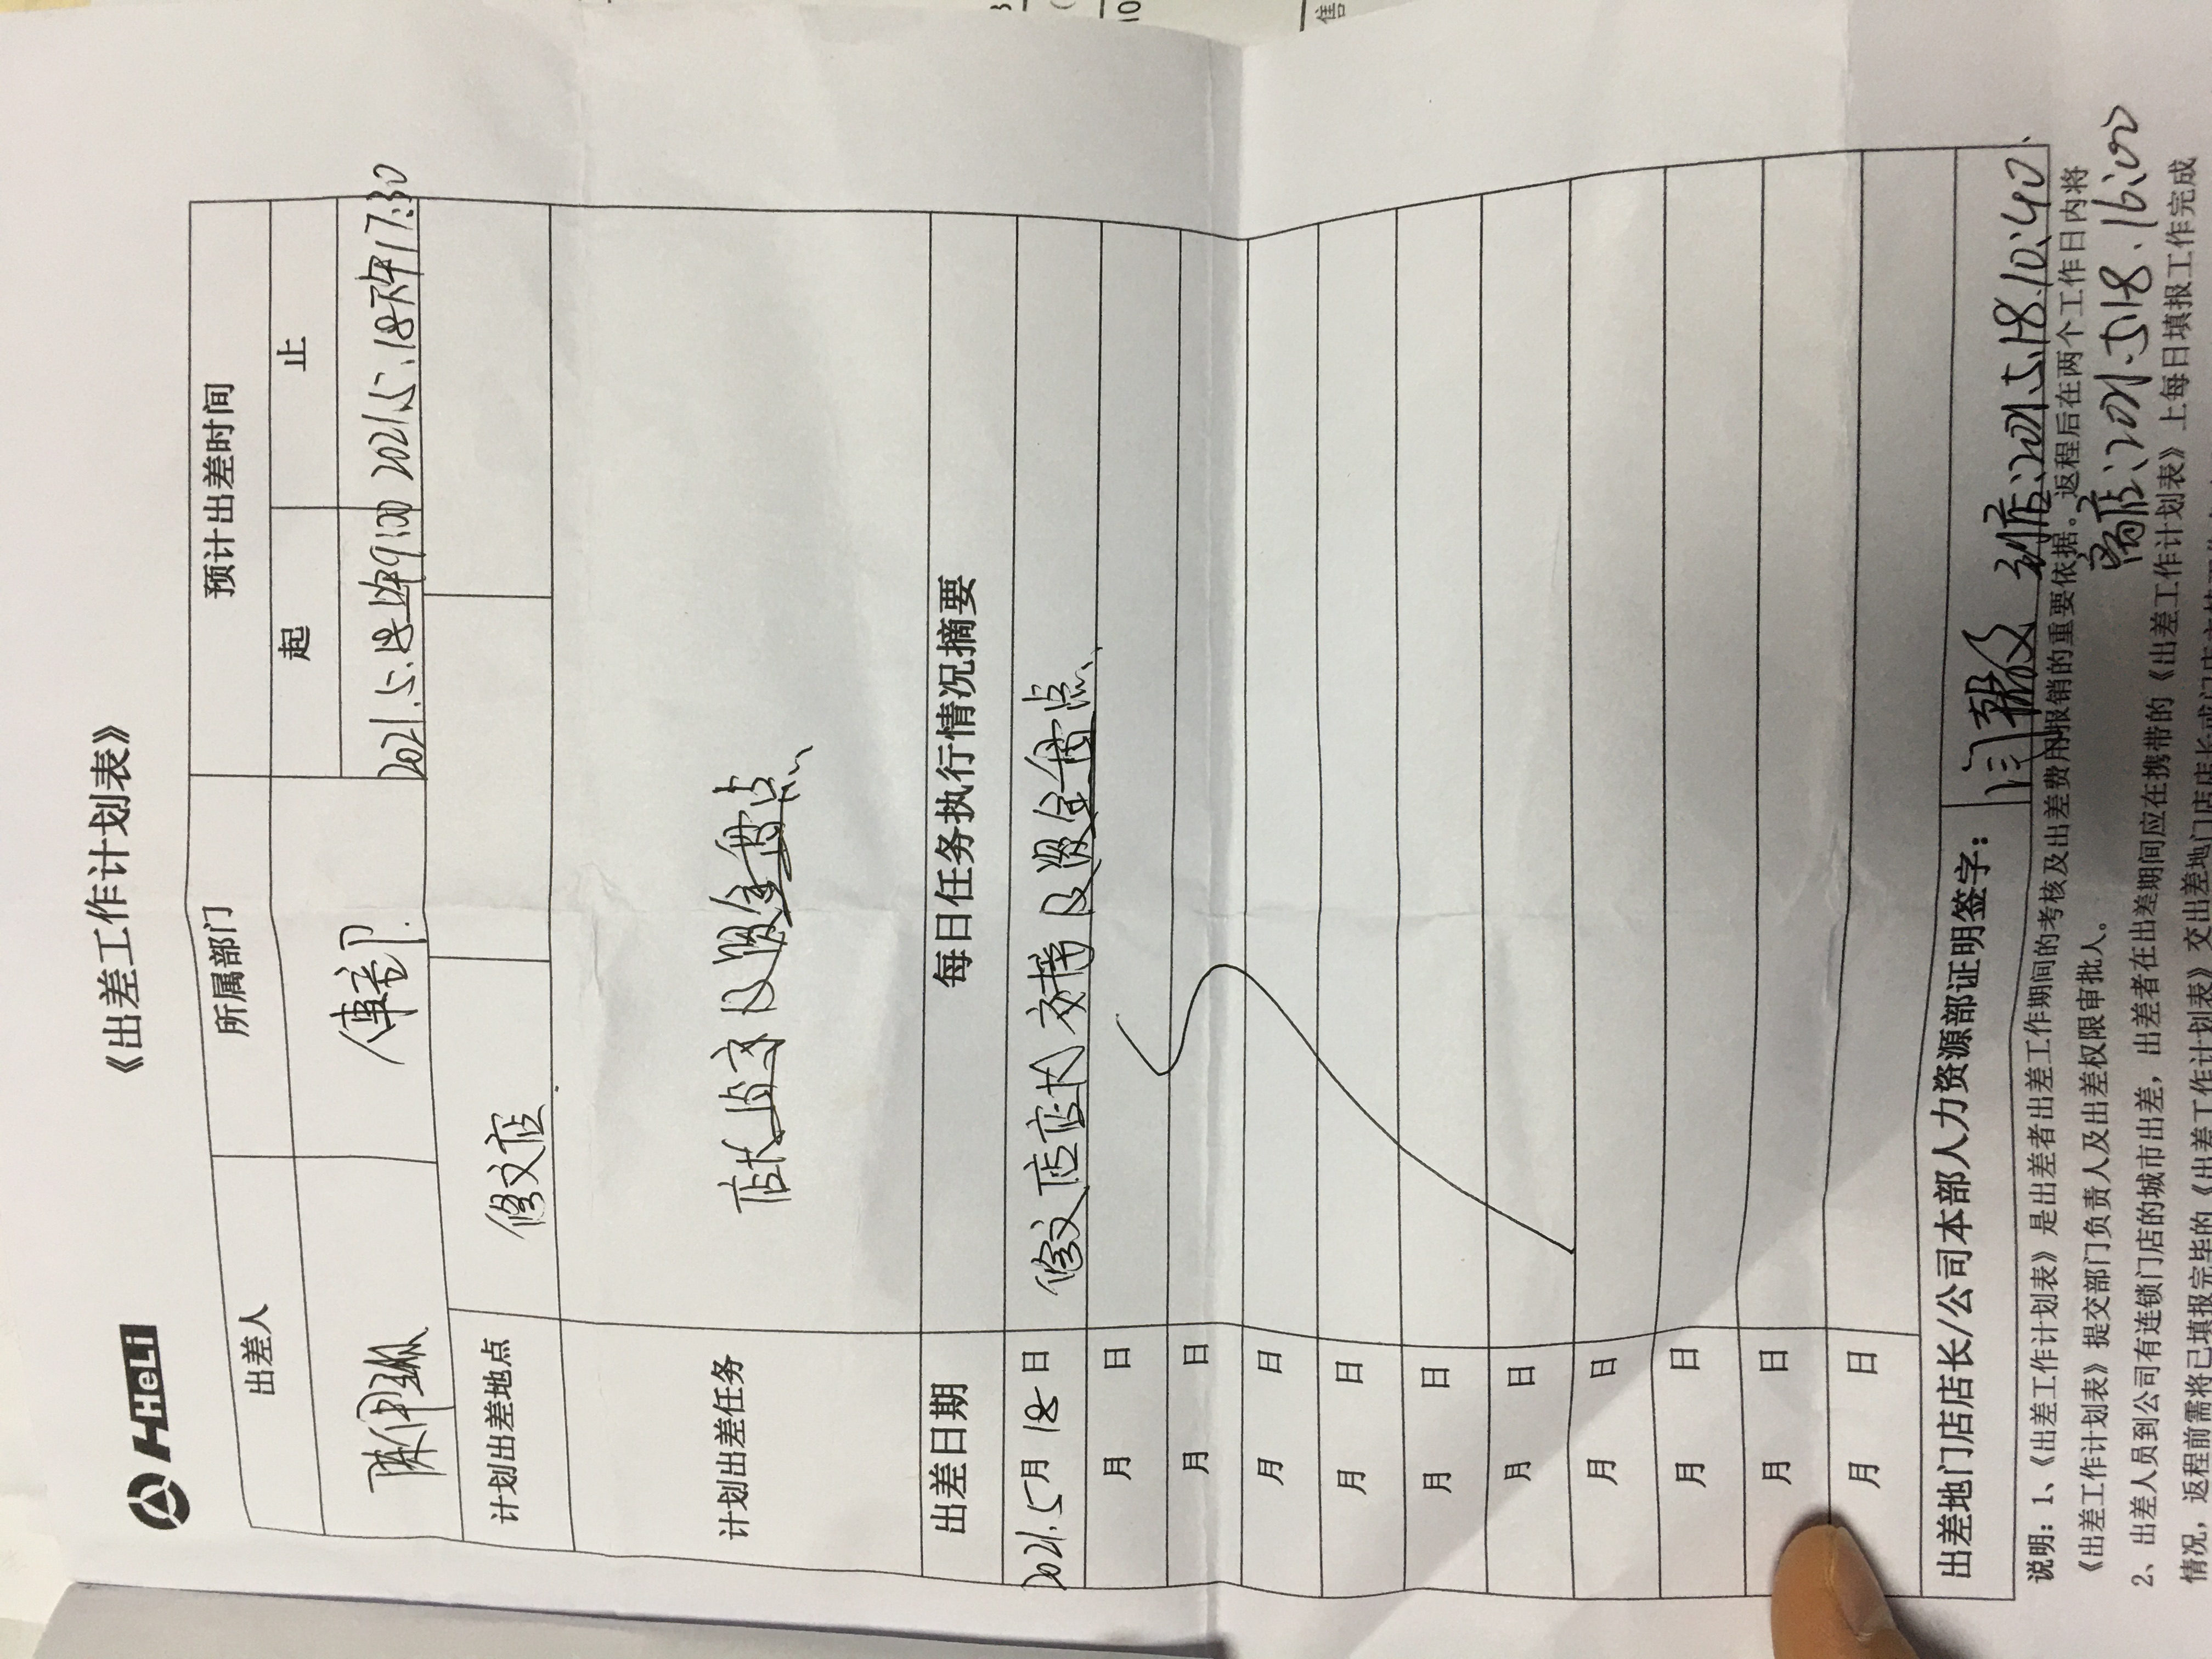 HELI
《出差工作计划表》
出差人 所属部门 预计出差时间
起 止
2021.5.18上午9:00 2021.5.18下午17:30
计划出差地点 修文店
计划出差任务 店长 及现金盘点
出差日期 每日任务执行情况摘要
2021.5月18日 修文店店长交接及现金盘点
月 日
月 日
月 日
月 日
月 日
月 日
月 日
月 日
月 日
月 日
出差地门店店长/公司本部人力资源部证明签字： 到店:2021.5.18.10:40
离店:2021.5.18.16:00
说明：1、《出差工作计划表》是出差者出差工作期间的考核及出差费用报销的重要依据。返程后在两个工作日内将
《出差工作计划表》提交部门负责人及出差权限审批人。
2、出差人员到公司有连锁门店的城市出差，出差者在出差期间应在携带的《出差工作计划表》上每日填报工作完成
情况，返程前需将已填报完毕的《出差工作计划表》交出差地门店店长或